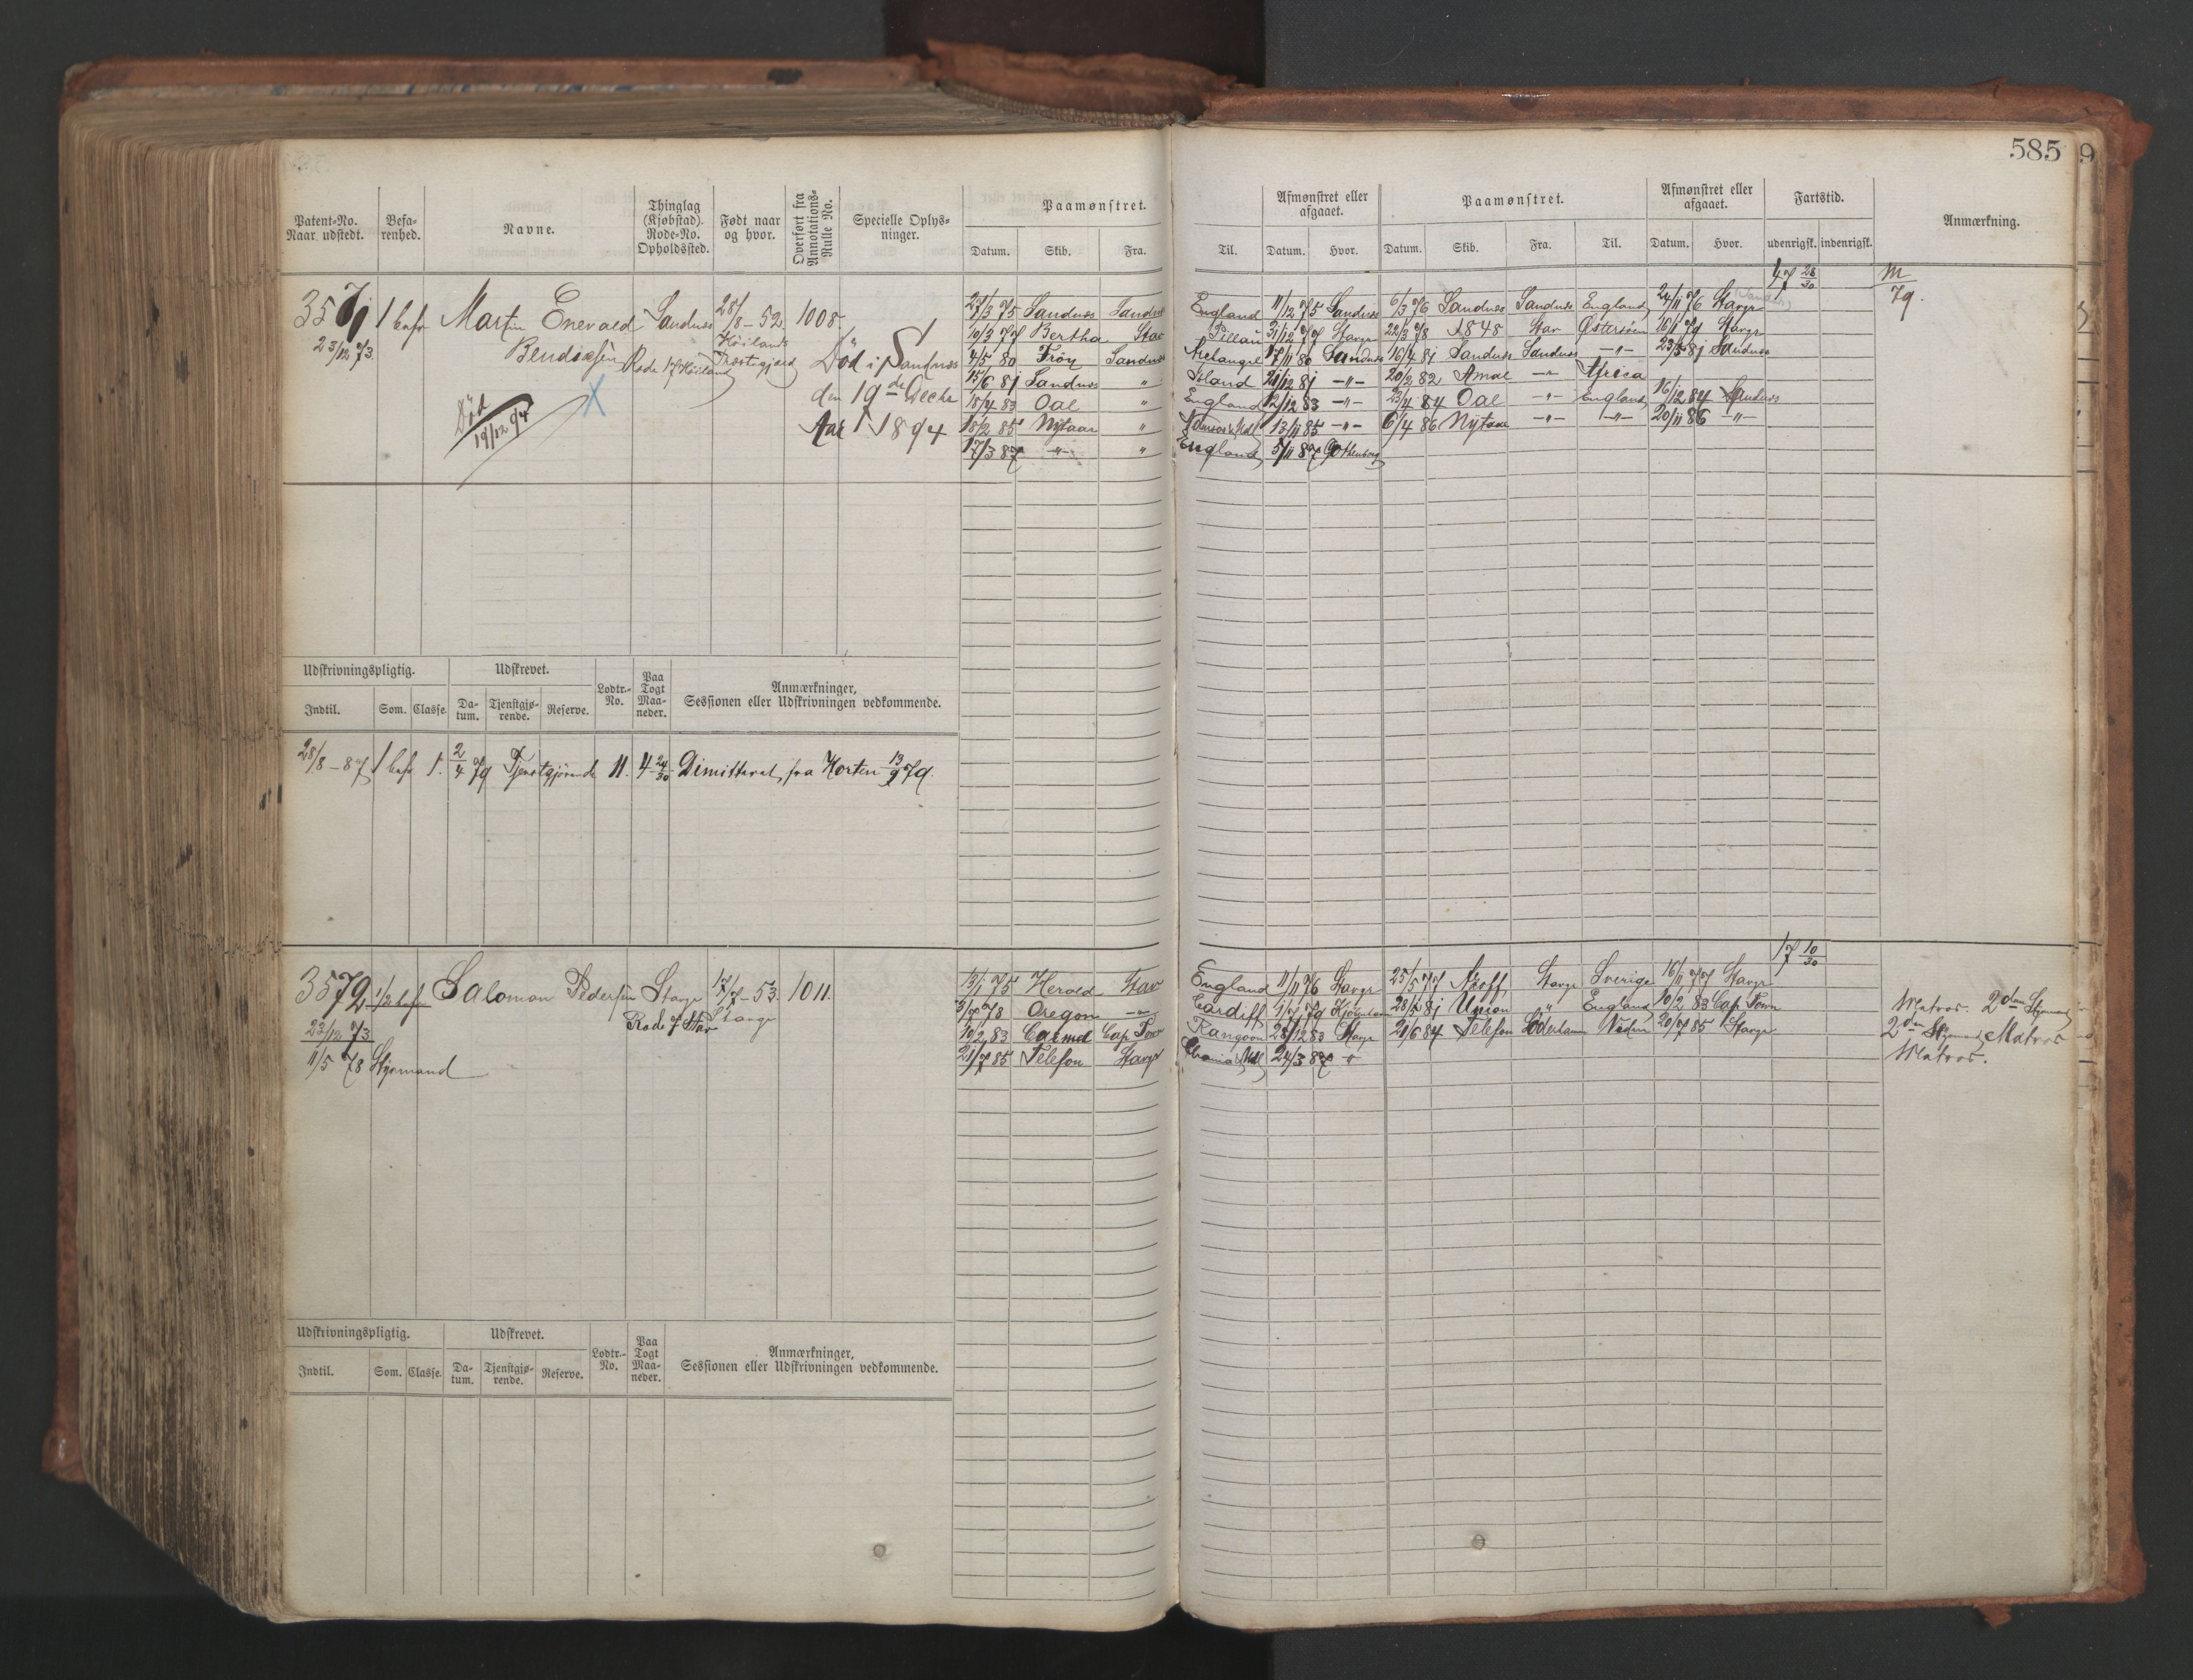 585
9
Patent-No. Naar udstedt.
Befa-renhed.
Navne.
Thinglag (Kjøbstad). Rode-No. Opholdssted.
Født naar og hvor.
Overført fra Annotations-Rulle No.
Specielle Oplys-ninger.
Paamønstret.
Datum. Skib. Fra. Til.
Afmønstret eller afgaaet.
Datum. Hvor.
Paamønstret.
Datum. Skib. Fra. Til.
Afmønstret eller afgaaet.
Datum. Hvor.
Fartstid.
udenrigsk. indenrigsk.
Anmærkning.
3571 1 bef Martin Enevald Sandnes 28/8-52 1008.
23/12 73 Bendiksen Rode 17 Høiland Høiland
Død i Sandnes
den 19de Decbr
Aar 1894
Død 19/12 94
47 28/30
M 79.
27/3 75 Sandnes Sandnes England 11/12 75 Sandnes 6/3 76 Sandnes Sandnes England 24/11 76 Stavgr
10/3 77 Bertha Stav Pillau 31/12 77 Stavgr 22/3 78 1848 Stav Østersöen 16/1 79 Stavgr
4/5 80 Fröy Sandnes Archangel 17/11 80 Sandnes 16/4 81 Sandnes Sandnes -"- 23/5 81 Sandnes
15/6 81 Sandnes " Island 21/12 81 -"- 20/2 82 Amal -"- Africa
18/4 83 Oal " England 12/12 83 -"- 23/4 84 Oal -"- England 16/12 84 Sandnes
18/2 85 Nytaar " 13/11 85 -"- 6/4 86 Nytaar -"- -"- 20/11 86 -"-
17/3 87 -"- " England 5/11 87 Gothenborg
Udskrivningspligtig.
Indtil. Som. Classe.
Udskrevet.
Da-tum. Tjenstgjø-rende. Reserve.
Lodtr.-No.
Paa Togt Maa-neder.
Anmærkninger, Sessionen eller Udskrivningen vedkommende.
28/8-87 1 bef 1. 2/4 79 Tjenstgjørende 11. 4 24/30 Dimitteret fra Horten 13/9 79.
3572 1/2 bef Salomon Pedersen Stavgr 17/7-53 1011.
23/12 73 Rode 7 Stav Stavgr
11/5 78 Styrmand
17 10/30
13/1 75 Herold Stav England 11/11 76 Stavgr 25/5 77 Stavgr Sverige 16/11 77 Stavgr
78 Oregon -"- Cardiff 79 Kjöbenhavn 28/5 81 Union " England 10/2 83 Cap Town
10/2 83 Carmel Cap Town Rangoon 28/12 83 Stavgr 21/6 84 Telefon Söderhamn 20/7 85 Stavgr
21/7 85 Telefon Stavgr 24/3 87
Matros. 2den Styrmand
2den Styrmand Matros
Matros.
Udskrivningspligtig.
Indtil. Som. Classe.
Udskrevet.
Da-tum. Tjenstgjø-rende. Reserve.
Lodtr.-No.
Paa Togt Maa-neder.
Anmærkninger, Sessionen eller Udskrivningen vedkommende.